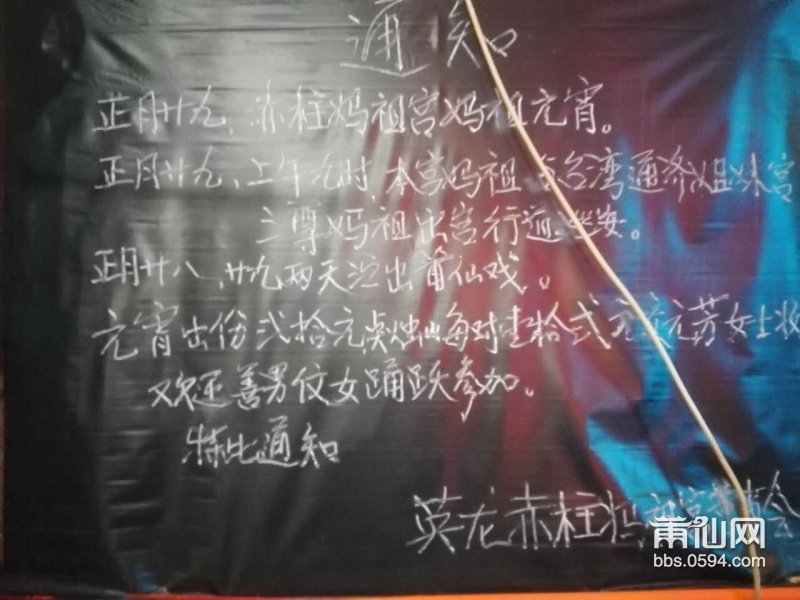 通知
正月廿九、赤柱妈祖宫妈祖元宵。
正月廿九、上午九时,本宫妈祖与台湾通济姐妹宫
三尊妈祖出宫行道坐安。
正月廿八、廿九两天演出莆仙戏。
元宵出份弍拾元,点烛山每对壹拾弍元 元芳女士收
欢迎善男仪女踊跃参加。
特此通知
英龙赤柱妈祖宫董事会
莆仙网
bbs.0594.com